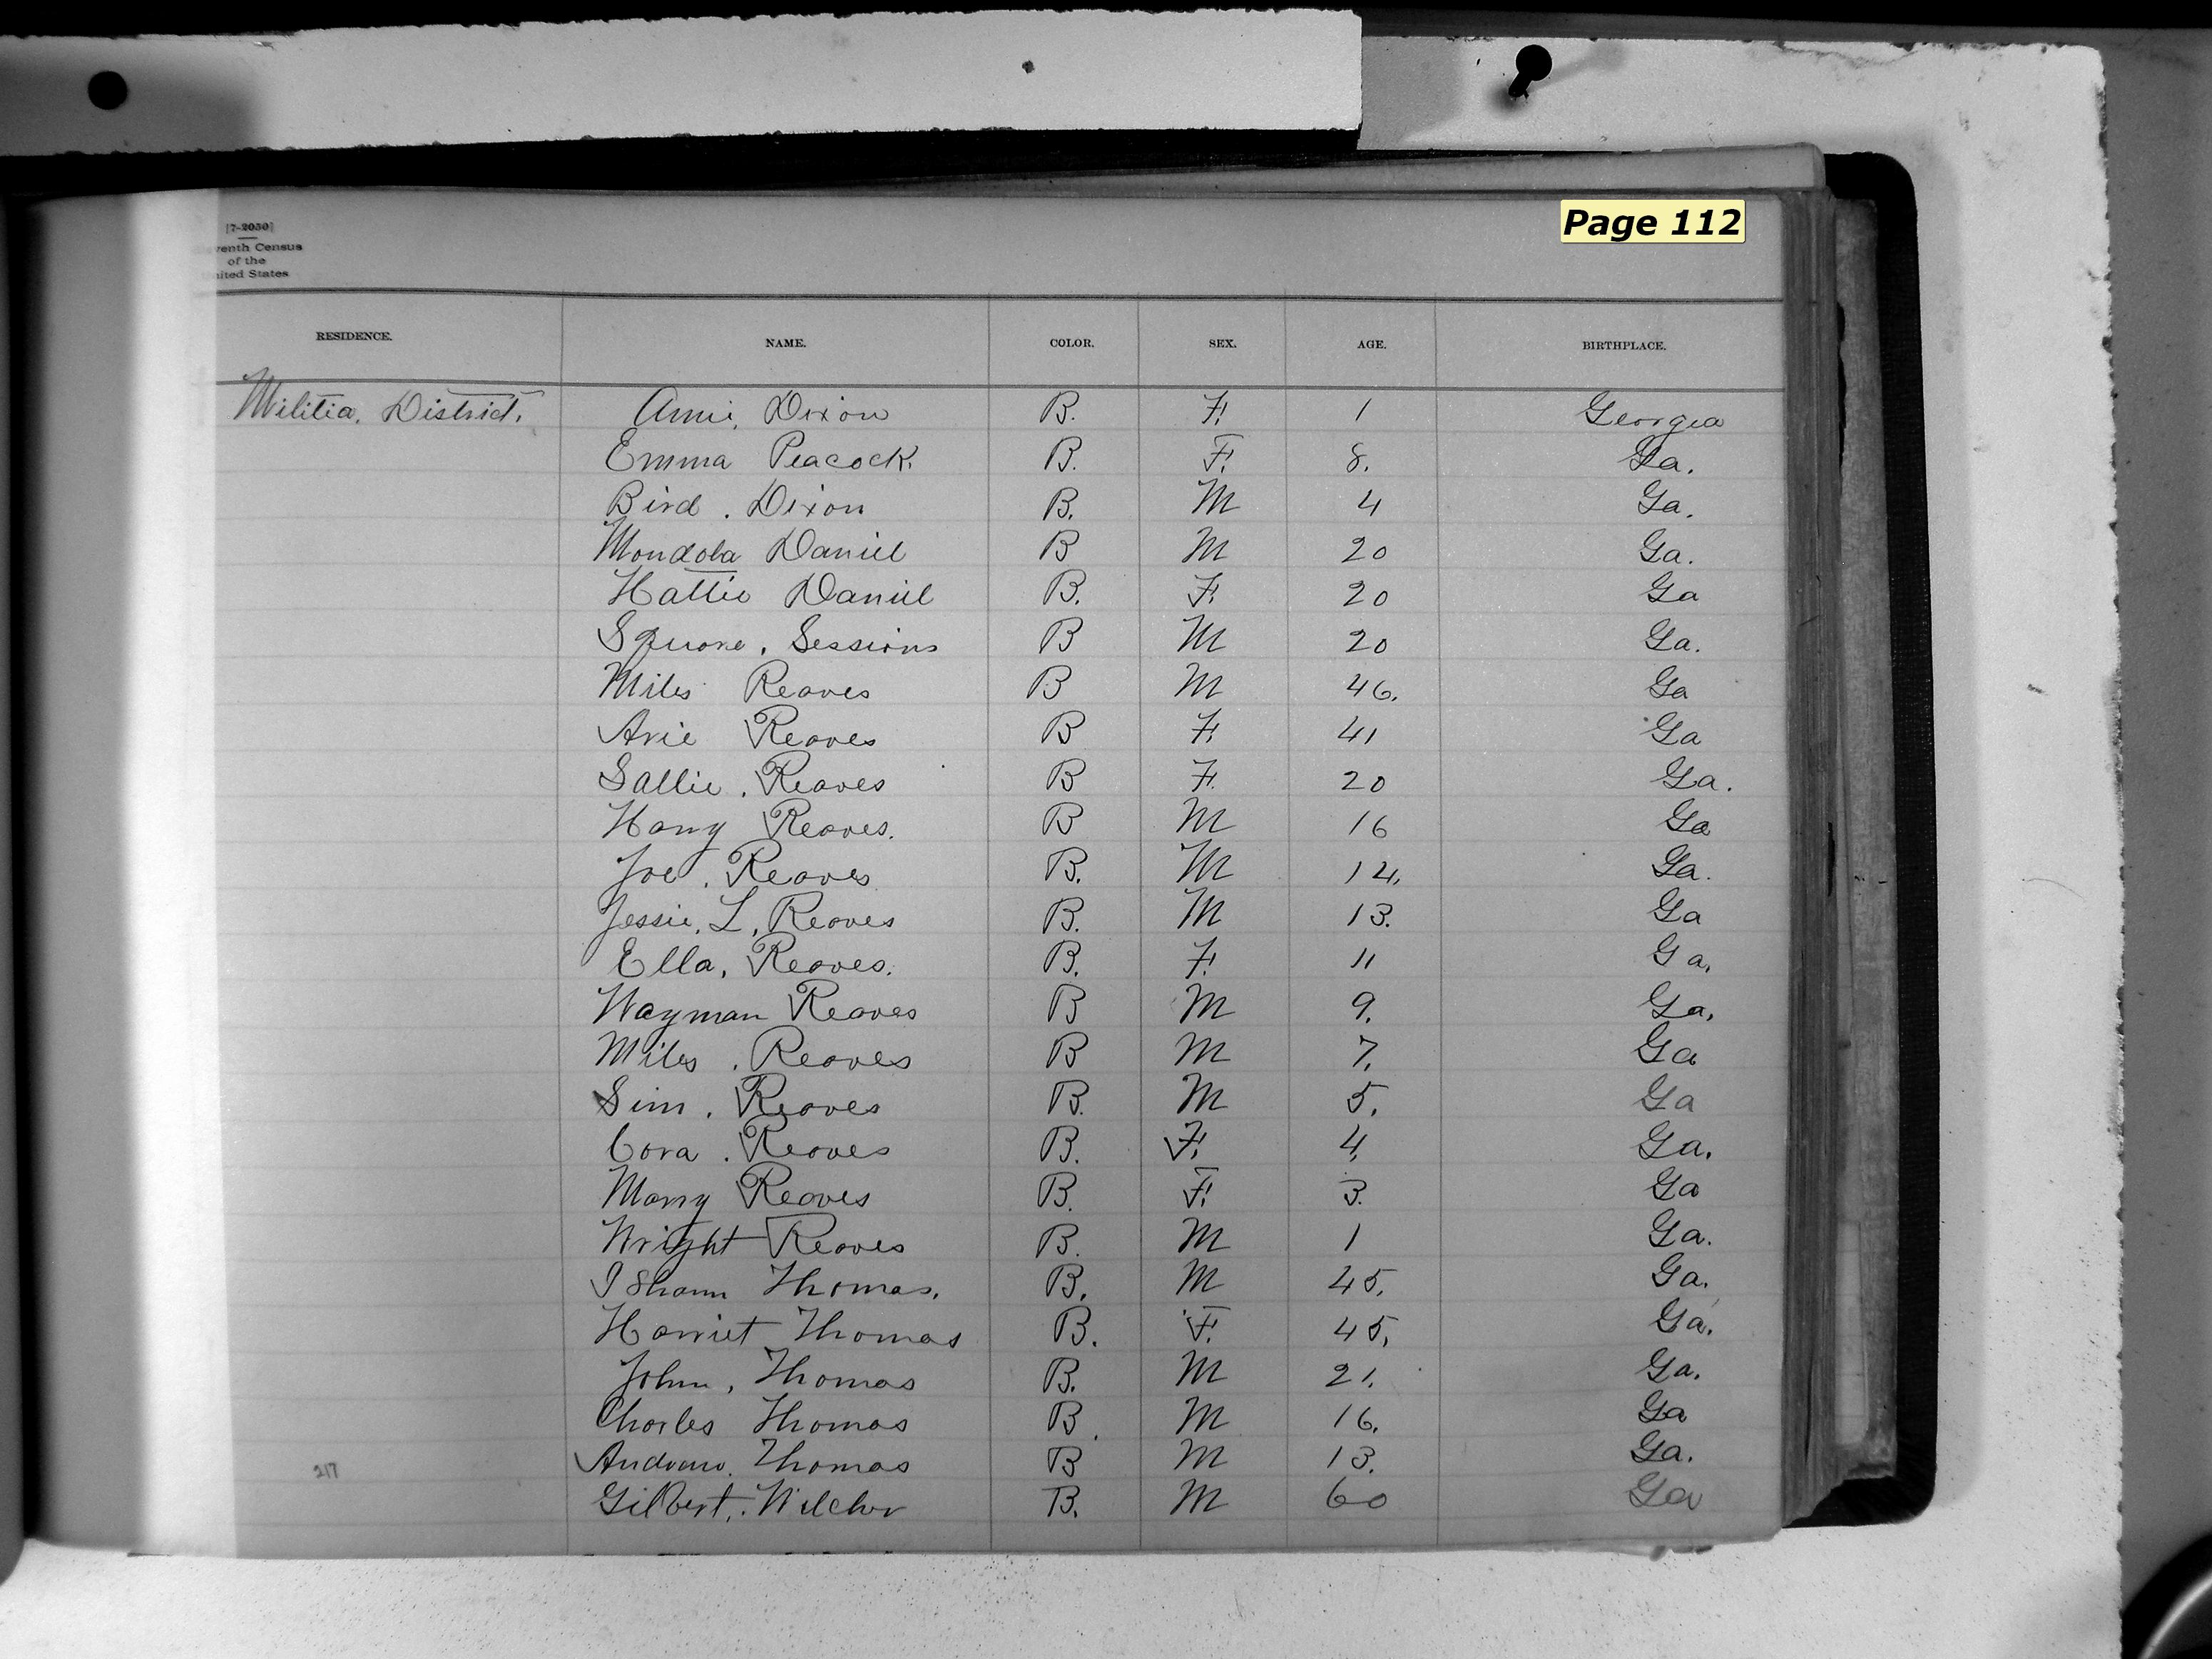 Page 112
[7-2050]
venth Census
of the
nited States
RESIDENCE. NAME. COLOR. SEX. AGE. BIRTHPLACE.
Militia. District. Annie. Dixon B. F. 1 Georgia
Emma Peacock. B. F. 8. Ga.
Bird. Dixon B. M 4 Ga.
Mondola Daniel B M 20 Ga.
Hattie Daniel B. F. 20 Ga
Squore. Sessions B M 20 Ga.
Miles Reaves B M 46. Ga
Arie Reaves B F. 41 Ga
Sallie. Reaves B F. 20 Ga.
Harry Reaves. B M 16 Ga
Joe. Reaves B. M 14. Ga.
Jessie. L. Reaves B. M 13. Ga
Ella, Reaves. B. F. 11 Ga.
Wayman Reaves B M 9. Ga.
Miles. Reaves B M 7. Ga
Sim. Reaves B. M 5. Ga
Cora. Reaves B. F. 4. Ga.
Marry Reaves B. F. 3. Ga
Wright Reaves B. M 1 Ga.
Isham Thomas. B. M 45. Ga.
Harriet Thomas B. F. 45. Ga.
John, Thomas B. M 21. Ga.
Charles Thomas B. M 16. Ga
Andrew. Thomas B M 13. Ga.
217
Gilbert. Wilcher B. M 60 Ga